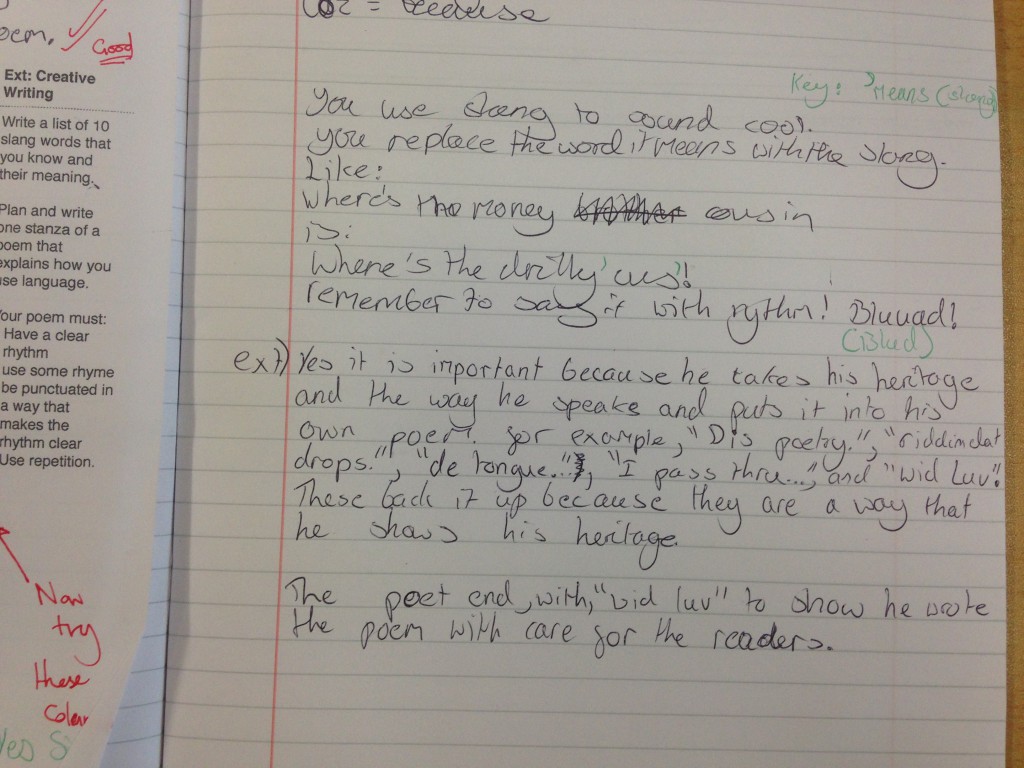 oem. Good
Ext: Creative
Writing
Write a list of 10
slang words that
you know and
their meaning.
Plan and write
one stanza of a
poem that
explains how you
use language.
Your poem must:
Have a clear
rhythm
use some rhyme
be punctuated in
a way that
makes the
rhythm clear
Use repetition.
Now
try
these
Yes S
= because
Key: ' Means (slang)
You use slang to sound cool.
you replace the word it means with the slang.
Like:
where's the money cousin
is:
Where's the drilly 'cus'!
remember to say it with rythm! Bluuad!
(Blud)
ext) Yes it is inportant because he takes his heritage
and the way he speaks and puts it into his
own poem. for example, "Dis poetry.", "riddim dat
drops.", "de tongue...", "I pass thru...", and "wid Luv".
These back it up because they are a way that
he shows his heritage.
The poet end, with, "wid luv" to show he wrote
the poem with care for the readers.